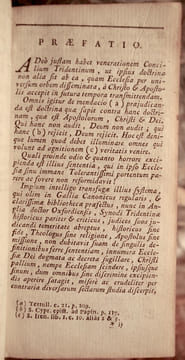 PRÆFATIO.
Adeò justam habet venerationem Conci-
lium Tridentinum, ut ipsius doctrina
non alia sit ab ea, quam Ecclesia per uni-
versum orbem disseminata, à Christo & Aposto-
lis accepit in futura tempora transmittendam.
Omnis igitur de mendacio (a) præjudican-
da est doctrina quæ sapit contra hanc doctri-
nam, quæ est Apostolorum, Christi & Dei.
Qui hanc non audit, Deum non audit; qui
hanc (b) rejicit, Deum rejicit. Hoc est deni-
que lumen quod debet illuminare omnes qui
volunt ad agnitionem (c) veritatis venire.
Quali proinde odio & quanto horrore exci-
pienda est illius sententia, qui in ipso Eccle-
siæ sinu immane Tolerantismi portentum pa-
rere ac fovere non reformidavit?
Impium intelligo transfugæ illius systema,
qui olim in Gallia Canonicus regularis, &
clarissimæ bibliothecæ præfectus, nunc in An-
glia doctor Oxfordiensis, Synodi Tridentinæ
historicus pariter & criticus, judicia sana ju-
dicandi temeritate abreptus, historicus sine
fide, Theologus sine religione, Apostolus sine
missione, non dubitavit suam de singulis de-
finitionibus ferre sententiam, innumera Eccle-
siæ Dei dogmata ac decreta fugillare, Christi
pallium, nempe Ecclesiam scindere, ipsiusque
sinum, dum omnibus sine discrimine excipien-
dis aperire satagit, misere ac crudeliter per
contraria diversarum sectarum studia discerpit,
(a) Tertull. c. 21. p. 209.
(b) S. Cypr. epist. ad Papin. p. 127.
(c) S. Iren. lib. 1. c. 10. Aliàs 2 & 3.